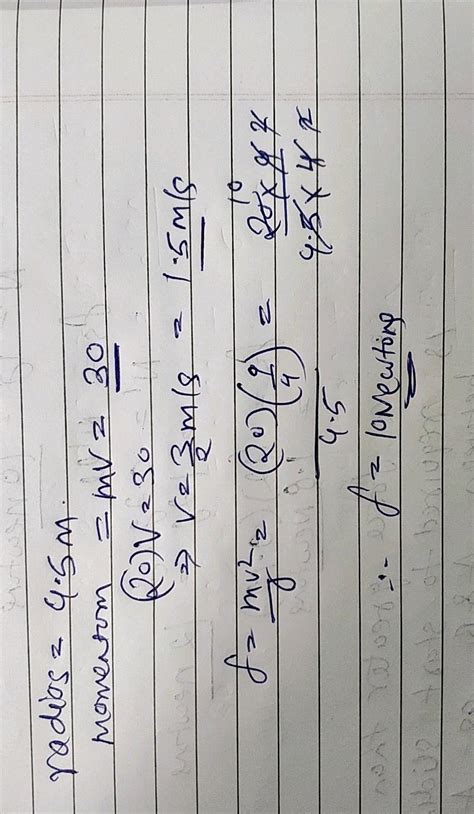 radius = 4.5 m.
momentum = mv = 30
(20)v = 30
⇒ v = 3/2 m/s = 1.5 m/s
f = mv²/r = (20)(9/4)/4.5 = 20 × 9/4.5 × 4
10
2
2
∴ f = 10 Newtons